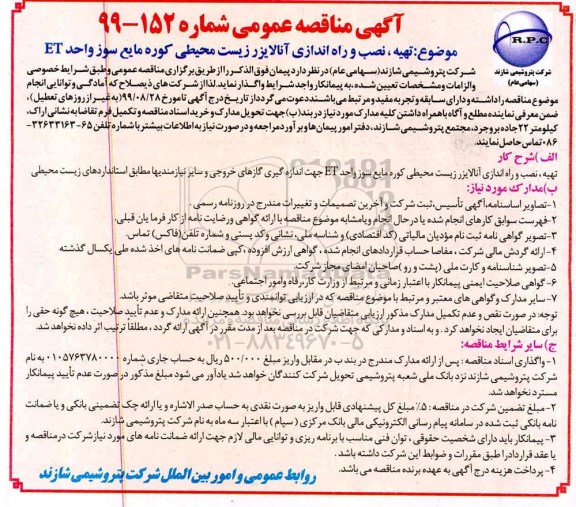 آگهی مناقصه عمومی شماره ۱۵۲-۹۹
موضوع: تهیه، نصب و راه اندازی آنالایزر زیست محیطی کوره مایع سوز واحد ET
R.P.C
شرکت پتروشیمی شازند
(سهامی عام)
شرکت پتروشیمی شازند (سهامی عام) در نظر دارد پیمان فوق الذکر را از طریق برگزاری مناقصه عمومی و طبق شرایط خصوصی
والزامات و مشخصات تعیین شده، به پیمانکار واجد شرایط واگذار نماید. لذا از شرکت های ذیصلاح که آمادگی و توانایی انجام
موضوع مناقصه را داشته و دارای سابقه و تجربه مفید و مرتبط می باشند دعوت می گردد از تاریخ درج آگهی تا مورخ ۹۹/۰۸/۲۸ (به غیر از روزهای تعطیل)،
ضمن معرفی نماینده مطلع و آگاه با همراه داشتن کلیه مدارک مورد نیاز در بند (ب) جهت تحویل مدارک و خرید اسناد مناقصه و تکمیل فرم تقاضا به نشانی اراک،
کیلومتر ۲۲ جاده بروجرد، مجتمع پتروشیمی شازند، دفتر امور پیمان ها و برآورد مراجعه و در صورت نیاز به اطلاعات بیشتر با شماره تلفن ۶۵-۳۲۶۳۳۱۶۳-
۰۸۶ تماس حاصل نمایند.
الف) شرح کار
تهیه، نصب و راه اندازی آنالایزر زیست محیطی کوره مایع سوز واحد ET جهت اندازه گیری گازهای خروجی و سایر نیازمندیها مطابق استانداردهای زیست محیطی
ب) مدارک مورد نیاز:
۱- تصاویر اساسنامه، آگهی تأسیس، ثبت شرکت و آخرین تصمیمات و تغییرات مندرج در روزنامه رسمی.
۲- فهرست سوابق کارهای انجام شده یا در حال انجام و یا مشابه موضوع مناقصه با ارائه گواهی و رضایت نامه از کارفرمایان قبلی.
۳- تصویر گواهی نامه ثبت نام مؤدیان مالیاتی (کد اقتصادی) و شناسه ملی، نشانی و کد پستی و شماره تلفن (فاکس) تماس.
۴- ارائه گردش مالی شرکت، مفاصا حساب قراردادهای انجام شده، گواهی ارزش افزوده، کپی ضمانت نامه های اخذ شده طی یکسال گذشته
۵- تصویر شناسنامه و کارت ملی (پشت و رو) صاحبان امضای مجاز شرکت
۶- گواهی صلاحیت ایمنی پیمانکار با اعتبار زمانی و مرتبط از وزارت کار، رفاه و امور اجتماعی.
۷- سایر مدارک و گواهی های معتبر و مرتبط با موضوع مناقصه که در ارزیابی توانمندی و تأیید صلاحیت متقاضی موثر باشد.
توجه: در صورت نقص و عدم تکمیل مدارک مذکور ارزیابی متقاضیان قابل بررسی نخواهد بود. همچنین ارائه مدارک و عدم تأیید صلاحیت، هیچ گونه حقی را
برای متقاضیان ایجاد نخواهد کرد. و به اسناد و مدارکی که جهت شرکت در مناقصه بعد از مدت مقرر در آگهی ارائه گردد، مطلقا ترتیب اثر داده نخواهد شد.
ج) سایر شرایط مناقصه:
۱- واگذاری اسناد مناقصه: پس از ارائه مدارک مندرج در بند ب در مقابل واریز مبلغ ۵۰۰/۰۰۰ ریال به حساب جاری شماره ۰۱۰۵۷۶۳۷۸۰۰۰۰ به نام
شرکت پتروشیمی شازند نزد بانک ملی شعبه پتروشیمی تحویل شرکت کنندگان خواهد شد یادآور می شود مبلغ مذکور در صورت عدم تأیید پیمانکار
مسترد نخواهد شد.
۲- مبلغ تضمین شرکت در مناقصه: ۵٪ مبلغ کل پیشنهادی قابل واریز به صورت نقدی به حساب صدرالاشاره و یا ارائه چک تضمینی بانکی و یا ضمانت
نامه بانکی ثبت شده در سامانه پیام رسانی الکترونیکی مالی بانک مرکزی (سپام) با اعتبار سه ماه به نام شرکت پتروشیمی شازند.
۳- پیمانکار باید دارای شخصیت حقوقی، توان فنی مناسب با برنامه ریزی و توانایی مالی لازم جهت ارائه ضمانت نامه های مورد نیاز شرکت در مناقصه و
یا عقد قرارداد را طبق مقررات و ضوابط این شرکت داشته باشد.
۴- پرداخت هزینه درج آگهی به عهده برنده مناقصه می باشد.
روابط عمومی و امور بین الملل شرکت پتروشیمی شازند
ParsNamadData
۰۲۱-۸۸۳۴۹۶۷۰-۵